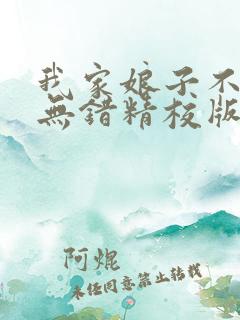 我家娘子不
無错精校版
阿焜
未经同意禁止转载